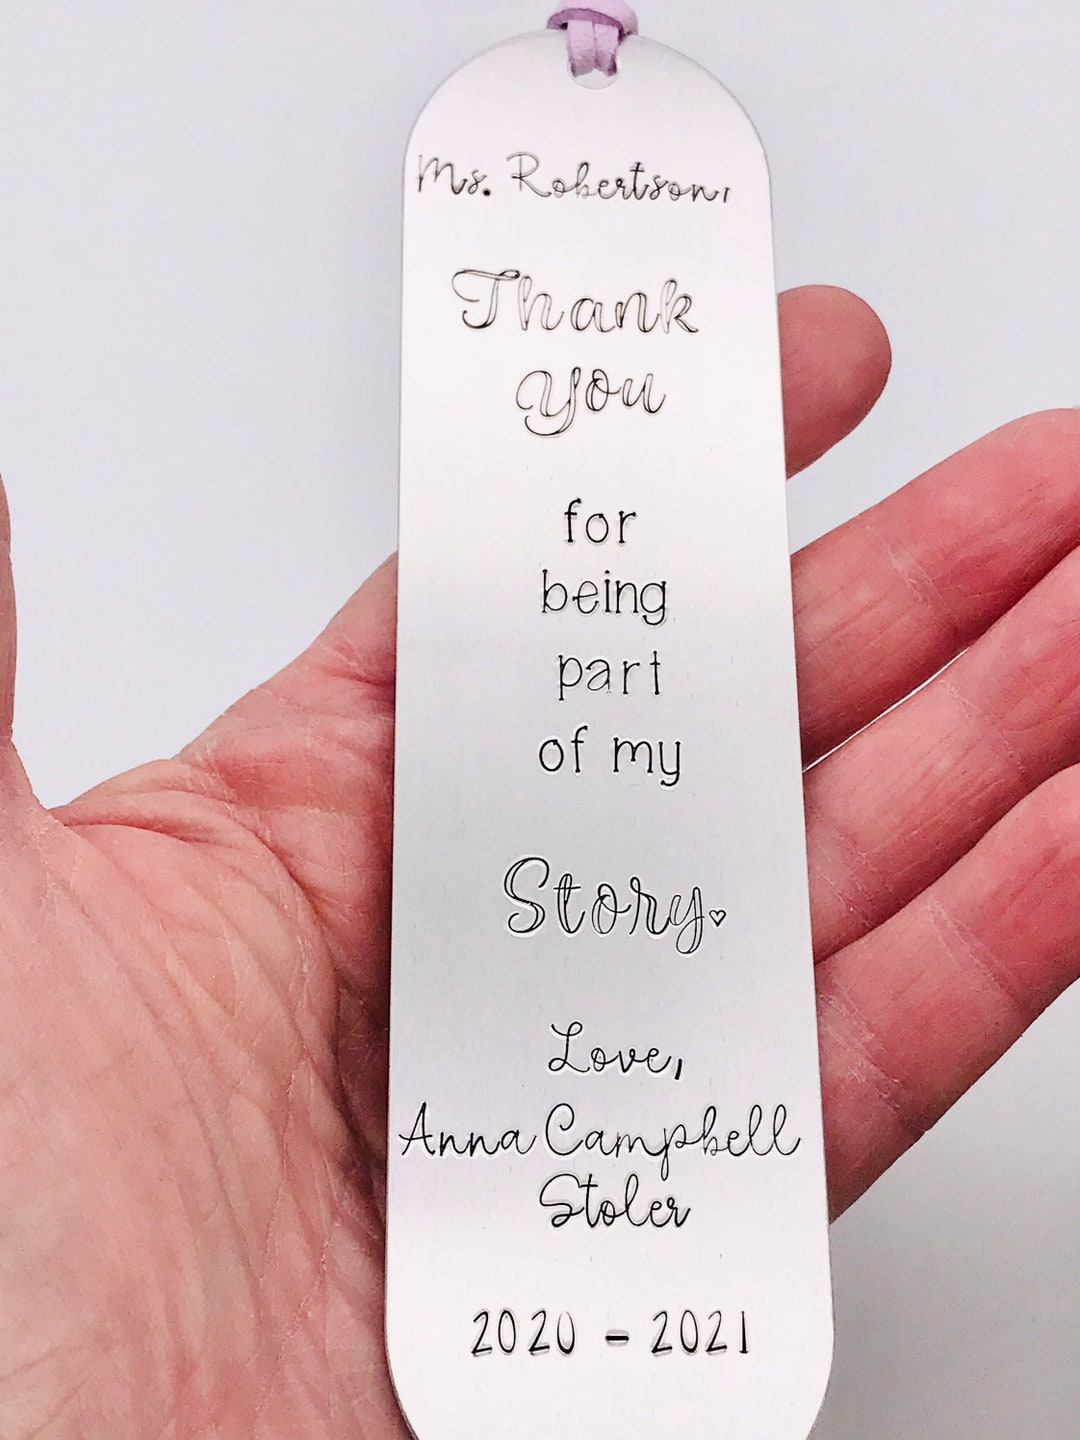 Ms. Robertson,
Thank
you
for
being
part
of my
Story.♡
Love,
Anna Campbell
Stoler
2020 - 2021